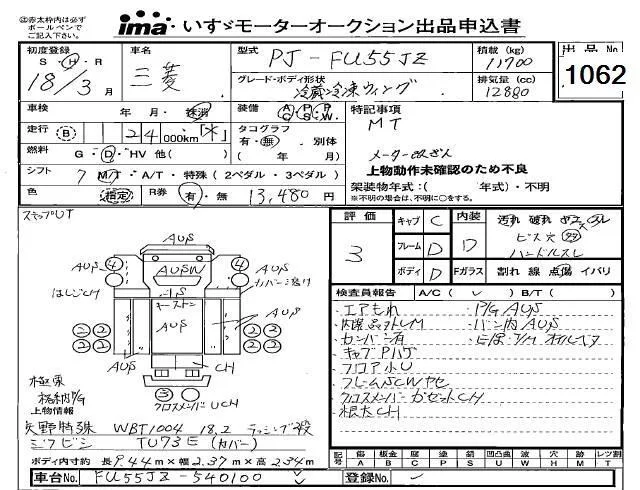 ㊟赤太枠内は必ず
ボールペンで
ご記入下さい。
ima いすゞモーターオークション出品申込書
初度登録 車名 型式 PJ-FU55JZ 積載 (kg) 11700 出品 No
S・H・R 18/3 月 三菱 グレード・ボディ形状 冷蔵冷凍ウィング 排気量 (cc) 12880 1062
車検 年・月・抹消 装備 A/C P/S P/W 特記事項
MT
走行 B 124 000km 「*」 タコグラフ 有・無 別体 ( 年 月)
メーター改ざん
燃料 G・D・HV 他( )
上物動作未確認のため不良
シフト 7 M/T・A/T・特殊 (2ペダル・3ペダル)
架装物年式:( 年式)・不明
色 指定 R券 有・無 13,480円
※不明の場合は、不明に○をする。
スキップUT
評価 3 キャブ C 内装 D 汚れ 破れ ヤケ スレ
ビス穴
フレーム D ハンドルスレ
ボディ D Fガラス 割れ 線 点傷 イバリ
検査員報告 A/C( ✓ ) B/T( )
・エアもれ ・P/G AUS
・バン内AUS
・カンバン有
・キャブPハゲ
・フロア小U
・フレームSCWヤセ
・クロスメンバーガセットCH
・根太CH
AUS
AUS ④ AUSW ④ AUS カバーシ
はしごCH キーストン
②② AUS AUS ②②
②② ②②
AUS CH
③ クロスメンバーUCH
極東
格納P/G
上物情報
矢野特殊 WBT1004 18.2 ラッシング3段
ミツビシ TU73E (カバー)
ボディ内寸約 長9.44m×幅2.37m×高2.34m
記号 傷 A 板金 B 腐 C 塗 P 錆 S 凹凸曲 U 波 W 穴 H 跡 M レツ割 T
車台No. FU55JZ-540100 登録No.